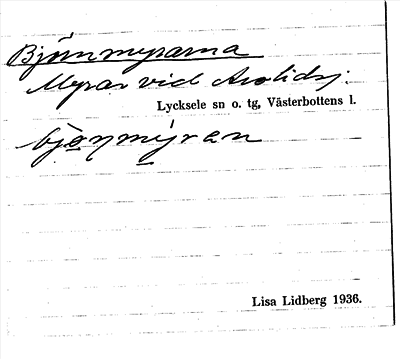 Björnmyrarna
Myrar vid Arvlidsj.
Lycksele sn o. tg, Västerbottens l.
bjønmýran
Lisa Lidberg 1936.